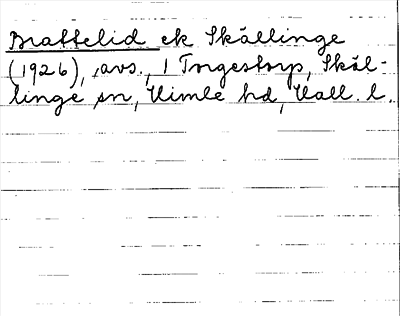 Brattelid ek Skällinge
(1926), avs., 1 Torgestorp, Skäl-
linge sn, Himle hd, Hall. l.